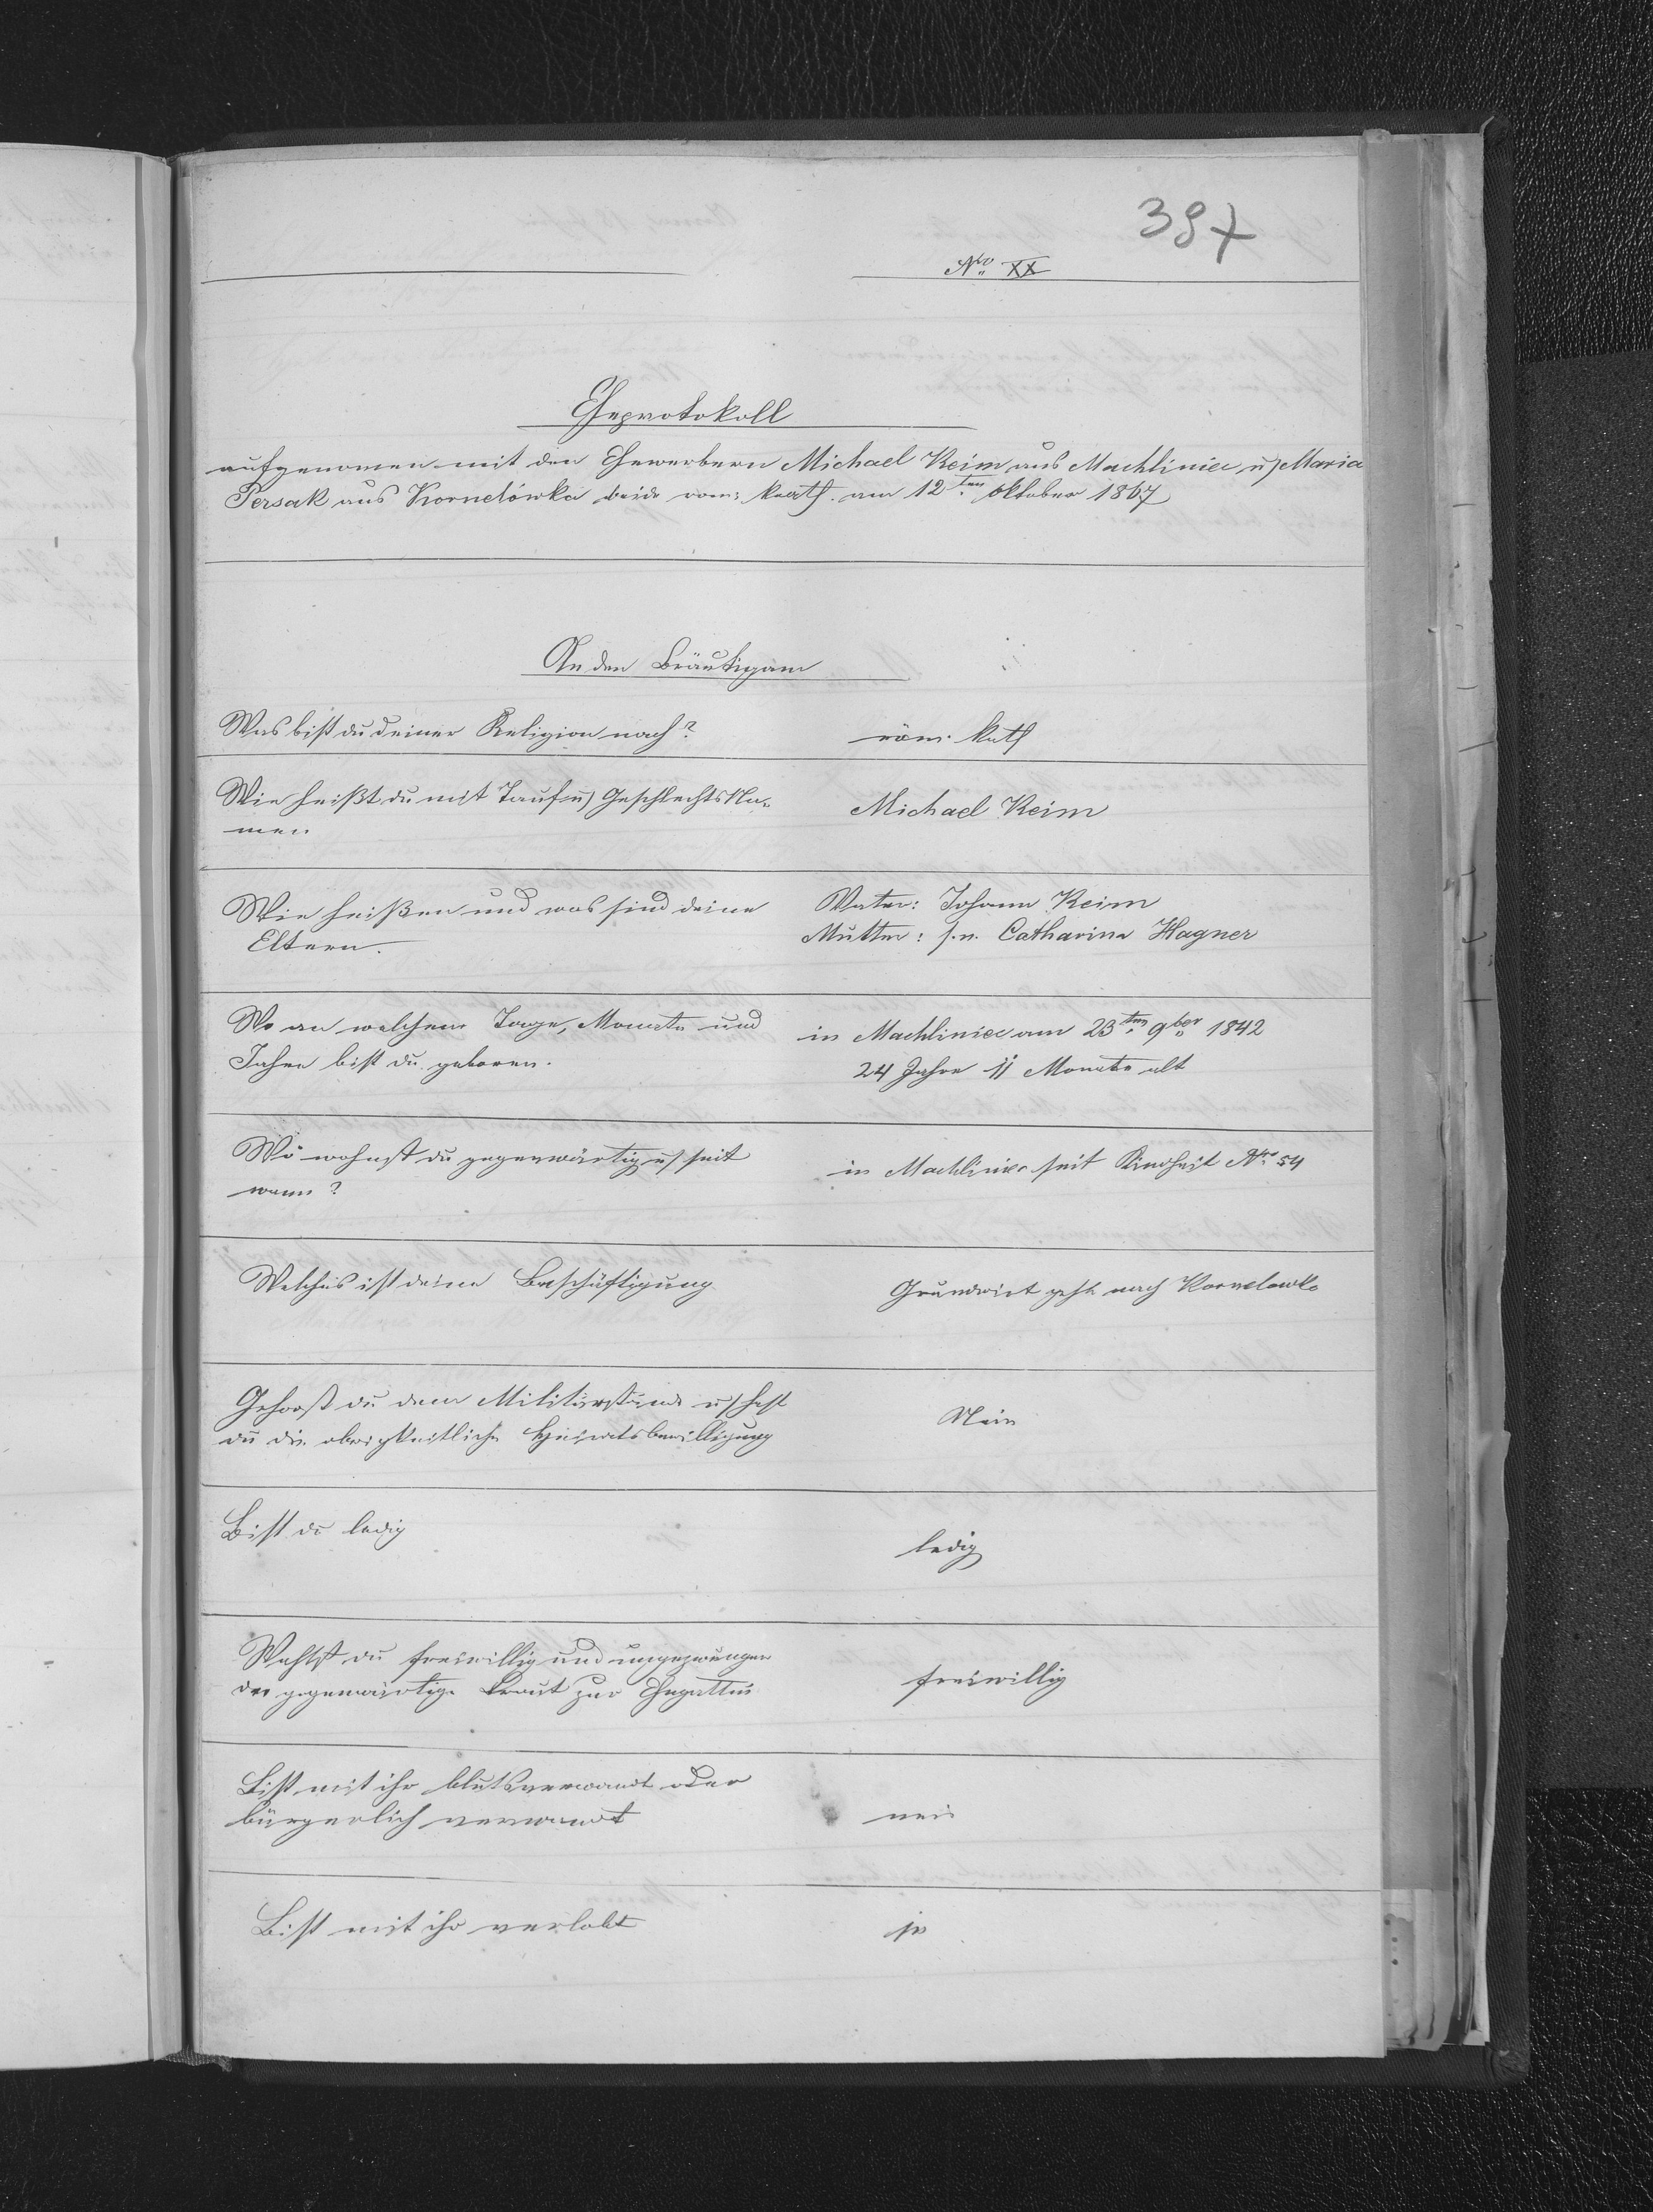 397
Nro XX
Eheprotokoll
aufgenomen mit den Ehewerbern Michael Keim aus Machliniec u) Maria
Persak aus Kornelówka beide röm: kath. am 12ten Oktober 1867
An den Bräutigam
Was bist du deiner Religion nach?
röm. kath
Wie heißt du mit Tauf u) Geschlechts Na-
men
Michael Keim
Wie heißen und was sind deine
Eltern.
Vater: Johann Keim
Mutter: Catharina Hagner
Wo an welchem Tage, Monate und
Jahre bist du geboren.
in Machliniec am 23ten 9ber 1842
24 Jahre 11 Monate alt
Wo wohnst du gegenwärtig u) seit
wann?
in Machliniec seit Kindheit Nro 54
Welches ist deine Beschäftigung
Grundwirt geht nach Kornelowka
Gehörst du dem Militärstande u) hast
du die obrigkeitliche Heiratsbewilligung
Nein
Bist du ledig
ledig
Wahlst du freiwillig und ungezwungen
die gegenwärtige Braut zur Ehegattin
freiwillig
Bist mit ihr blutsverwandt oder
bürgerlich verwandt
nein
Bist mit ihr verlobt
ja